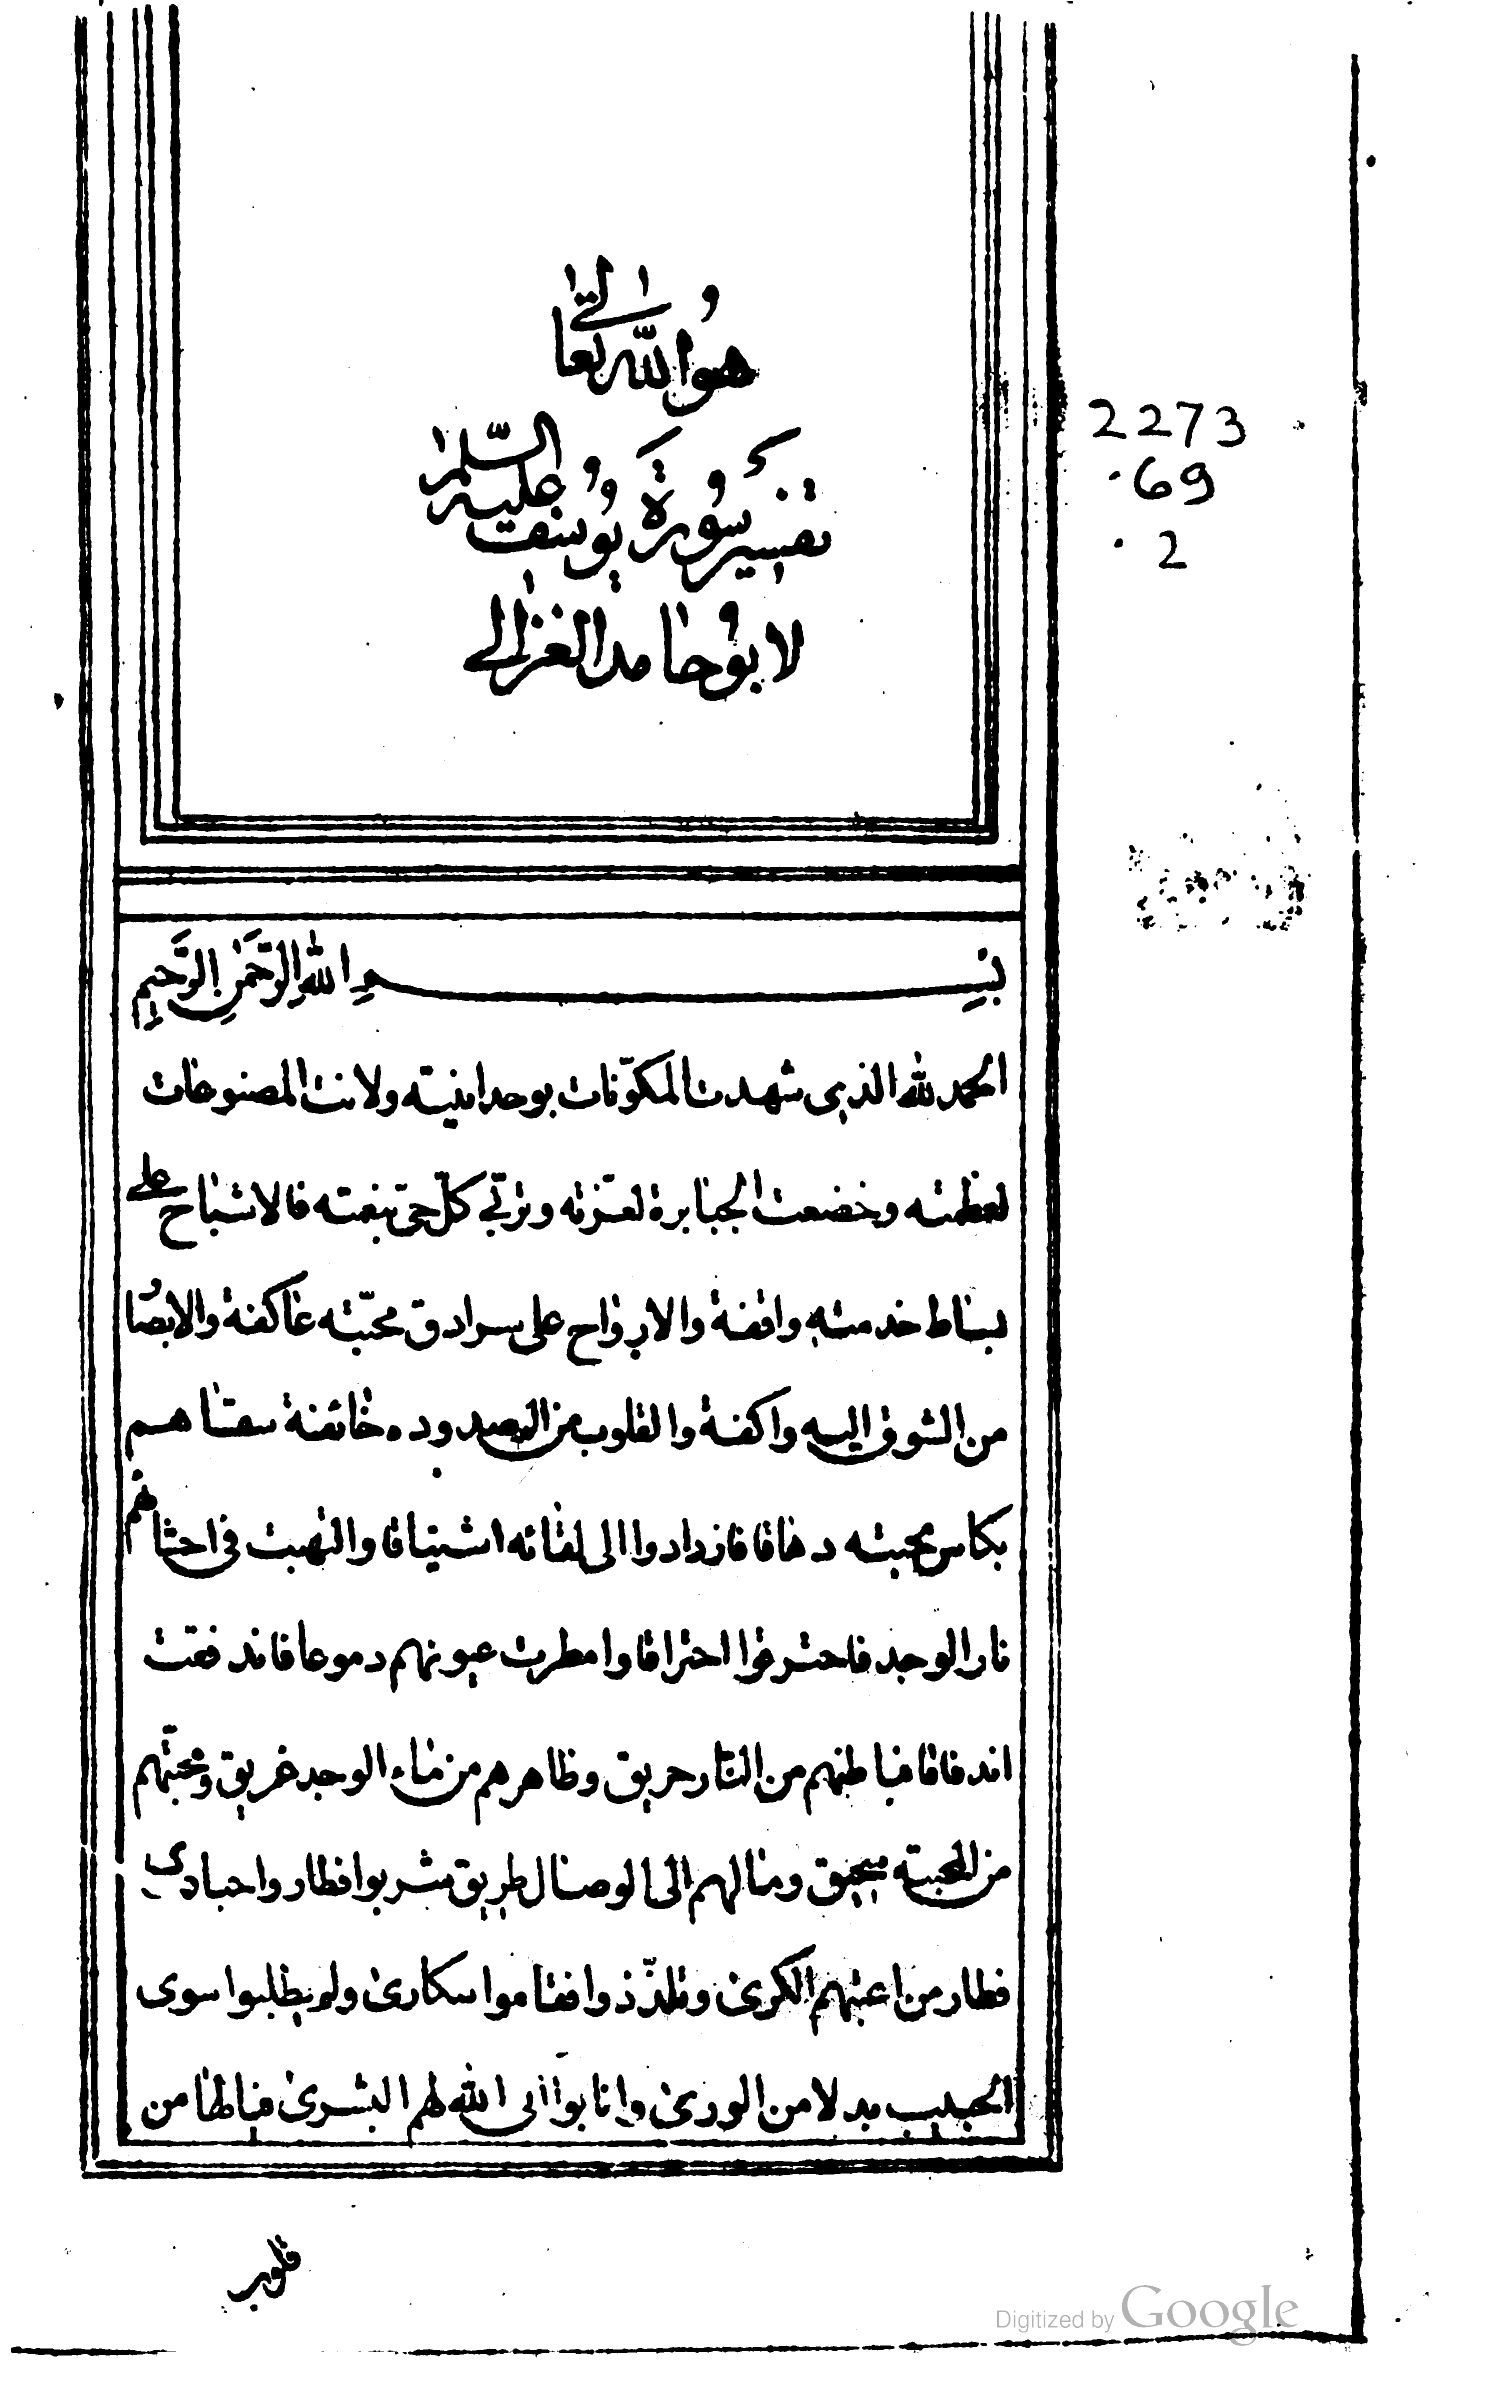 هو الله تعالى
تفسير سورة يوسف عليه السلام
لابو حامد الغزالى
2273
.69
.2
بسم الله الرحمن الرحيم
الحمد لله الذى شهدت المكوّنات بوحدانيته ولانت المصنوعات
لعظمته وخضعت الجبابرة لعزّته وتربّى كلّ حىّ بنعمته فالاشباح على
بساط خدمته واقفة والارواح على سرادق محبّته عاكفة والابصا
من الشوق اليه واكفة والقلوب من الصدود خائفة سقاهم
بكاس محبته دهاقا فازدادوا الى لقائه اشتياقا والتهبت فى احشاهم
نار الوجد فاحترقوا احتراقا وامطرت عيونهم دموعا فاندفعت
اندفاقا فباطنهم من النار حريق وظاهرهم من ماء الوجد غريق ومحبّتهم
من المحبته ومالهم الى الوصال طريق شربوا فطاروا حيادى
فطار من اعينهم الكرى وتلذّذوا فقاموا سكارى ولم يطلبوا سوى
الحبيب بدلا من الورى وانابوا الى الله لهم البشرى فيالها من
قلوب
Digitized by Google